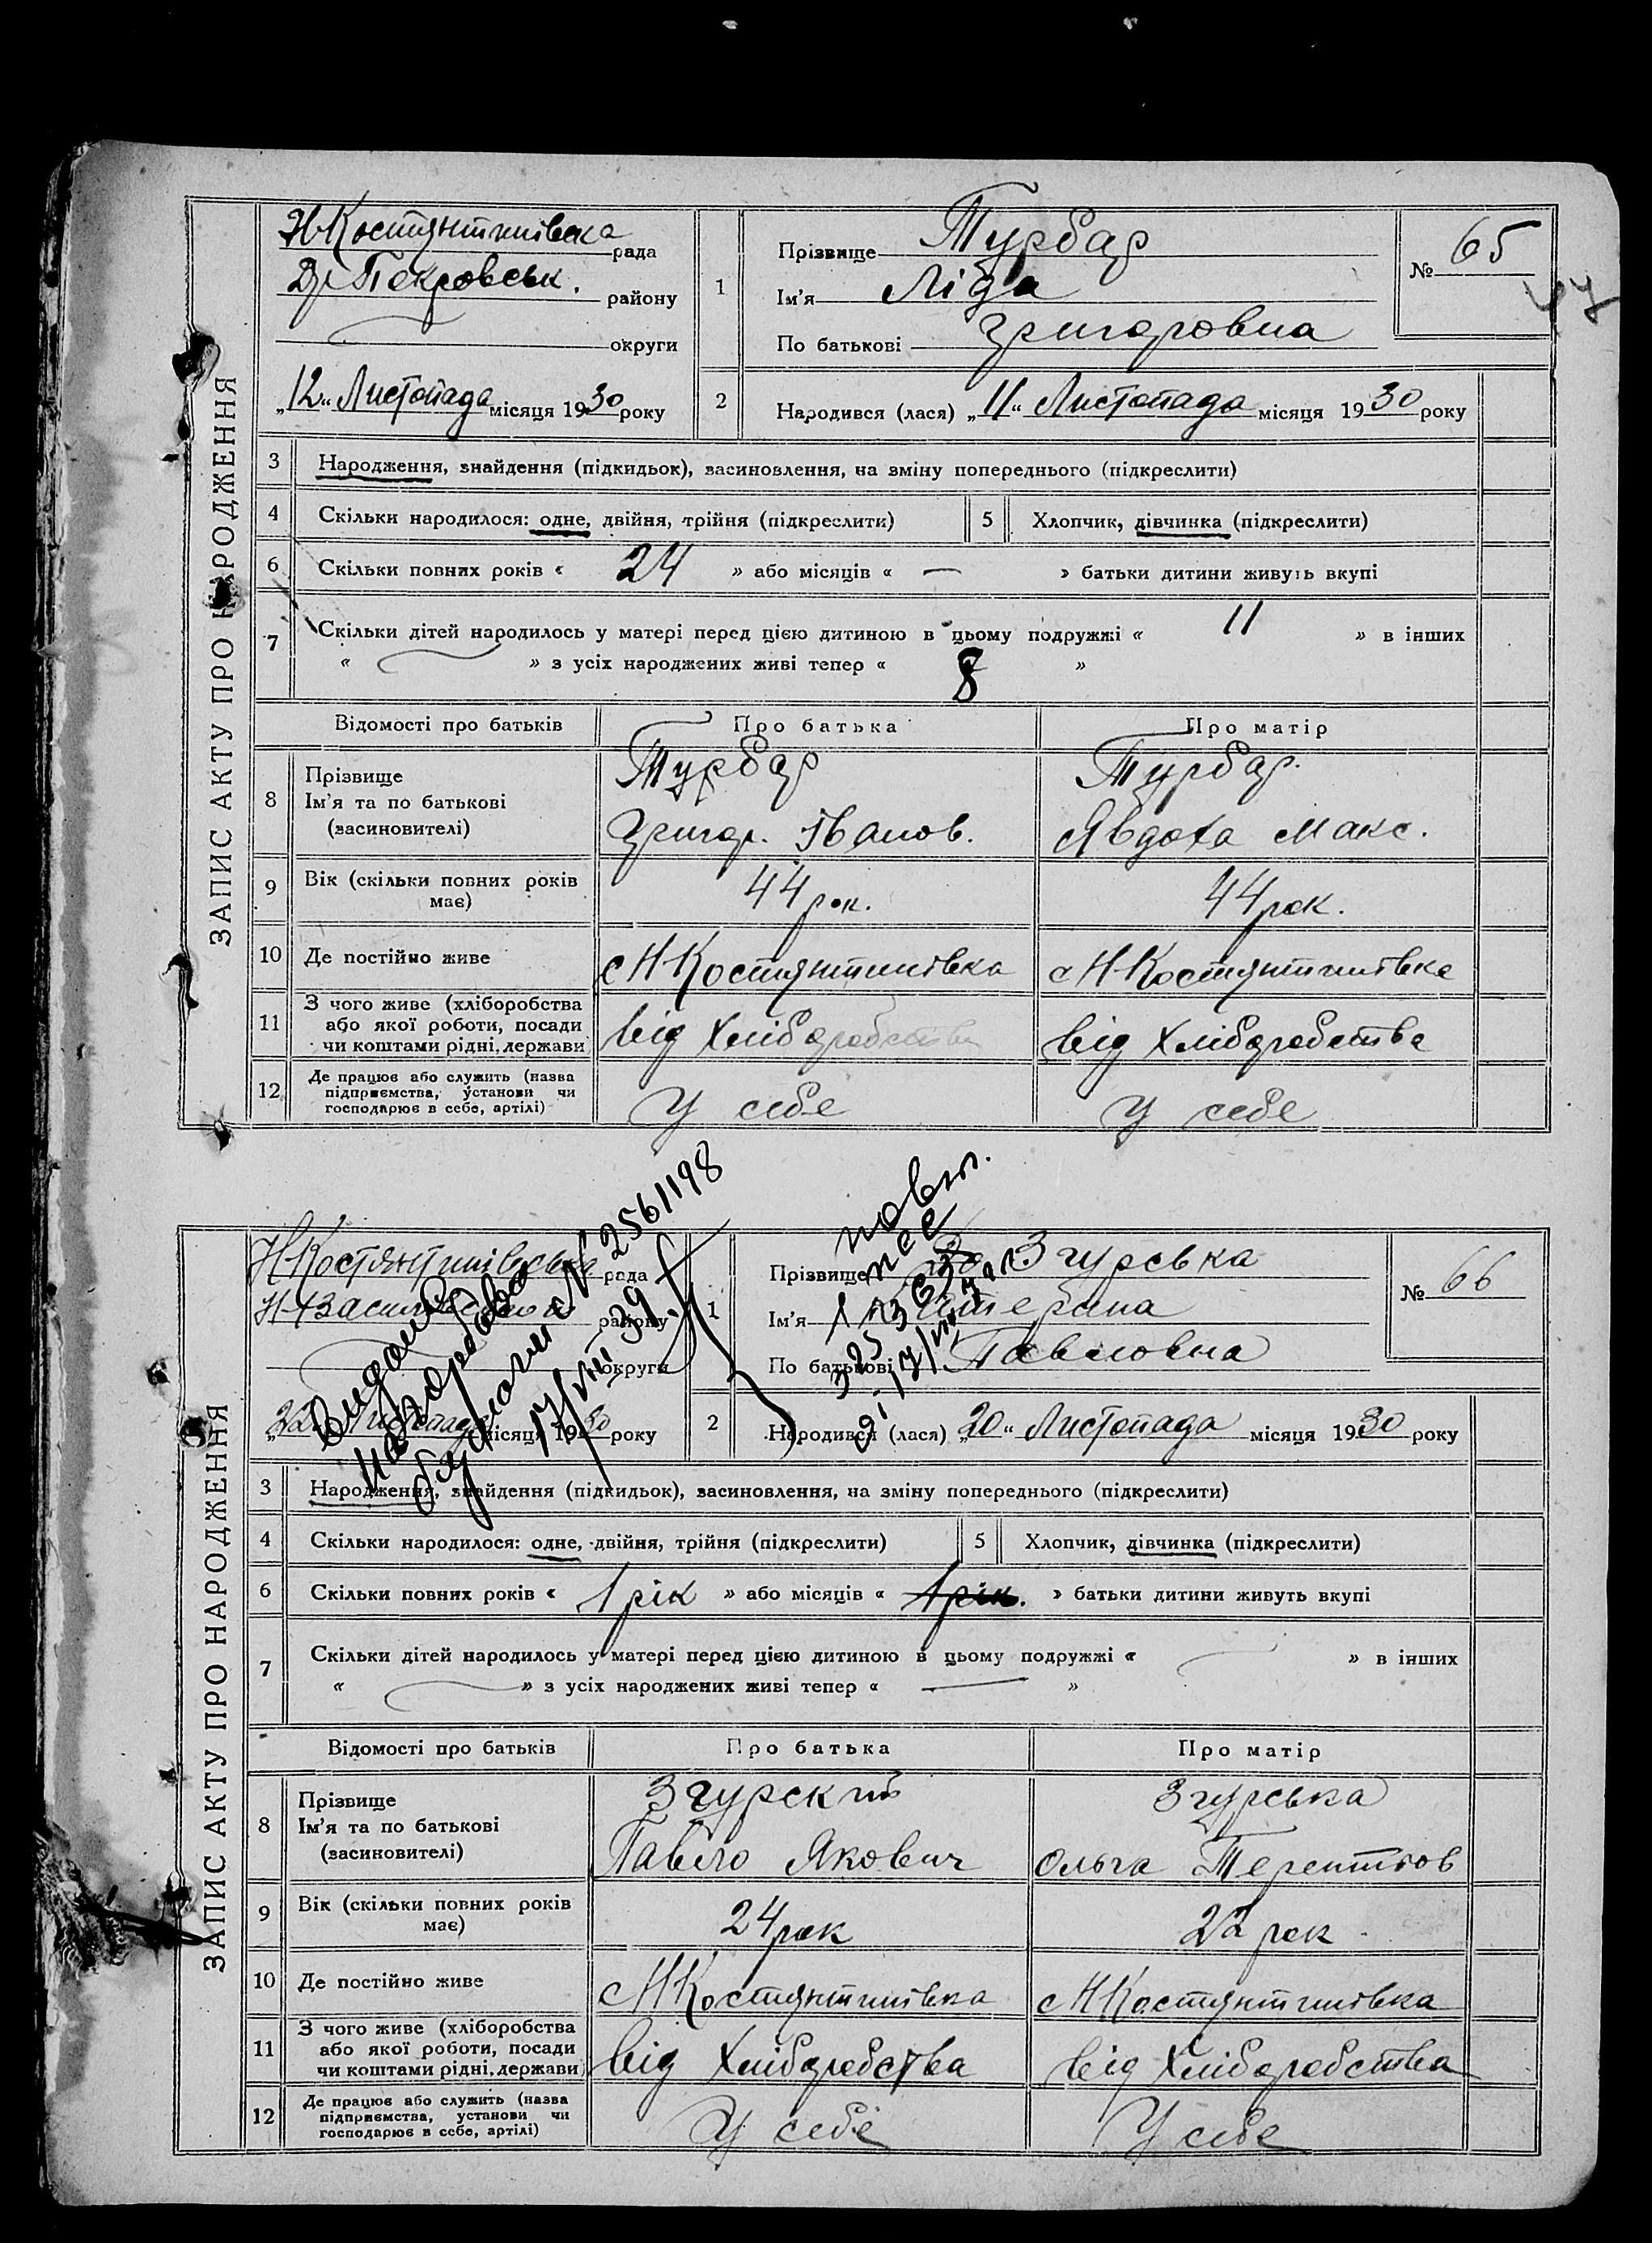 ЗАПИС АКТУ ПРО НАРОДЖЕННЯ
Н-Костянтинівська рада
району
округи
„12“ Листопада місяця 1930 року
1
Прізвище Турбар
Ім'я Ліда
По батькові Григоровна
№ 65
47
2
Народився (лася) „11“ Листопада місяця 1930 року
3 Народження, знайдення (підкидьок), засиновлення, на зміну попереднього (підкреслити)
4 Скільки народилося: одне, двійня, трійня (підкреслити) 5 Хлопчик, дівчинка (підкреслити)
6 Скільки повних років « 24 » або місяців « — » батьки дитини живуть вкупі
7 Скільки дітей народилось у матері перед цією дитиною в цьому подружжі « 11 » в інших
« — » з усіх народжених живі тепер « 8 »
Відомості про батьків Про батька Про матір
8 Прізвище Турбар Турбар
Ім'я та по батькові
(засиновителі) Григор. Іванов. Явдоха Макс.
9 Вік (скільки повних років має) 44 рок. 44 рок.
10 Де постійно живе с Н-Костянтинівка с Н-Костянтинівка
11 З чого живе (хліборобства
або якої роботи, посади
чи коштами рідні, держави від Хліборобства від Хліборобства
12 Де працює або служить (назва
підприємства, установи чи
господарює в себе, артілі) У себе У себе
ЗАПИС АКТУ ПРО НАРОДЖЕННЯ
Н-Костянтинівська рада
району
округи
„22“ Листопада місяця 1930 року
№ 2561198
17/VIII 39
1
Прізвище Згурська
Ім'я
По батькові Павловна
№ 66
2
Народився (лася) „20“ Листопада місяця 1930 року
3 Народження, знайдення (підкидьок), засиновлення, на зміну попереднього (підкреслити)
4 Скільки народилося: одне, двійня, трійня (підкреслити) 5 Хлопчик, дівчинка (підкреслити)
6 Скільки повних років « 1 рік » або місяців « 1 рік. » батьки дитини живуть вкупі
7 Скільки дітей народилось у матері перед цією дитиною в цьому подружжі « — » в інших
« — » з усіх народжених живі тепер « — »
Відомості про батьків Про батька Про матір
8 Прізвище Згурский Згурська
Ім'я та по батькові
(засиновителі) Павло Якович Ольга Терентіов
9 Вік (скільки повних років має) 24 рок 22 рок
10 Де постійно живе с Н-Костянтинівка с Н-Костянтинівка
11 З чого живе (хліборобства
або якої роботи, посади
чи коштами рідні, держави від Хліборобства від Хліборобства
12 Де працює або служить (назва
підприємства, установи чи
господарює в себе, артілі) У себе У себе